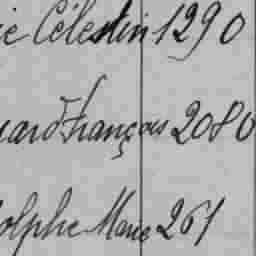 ie Célestin 1290
uard François 2080
olphe Marie 261